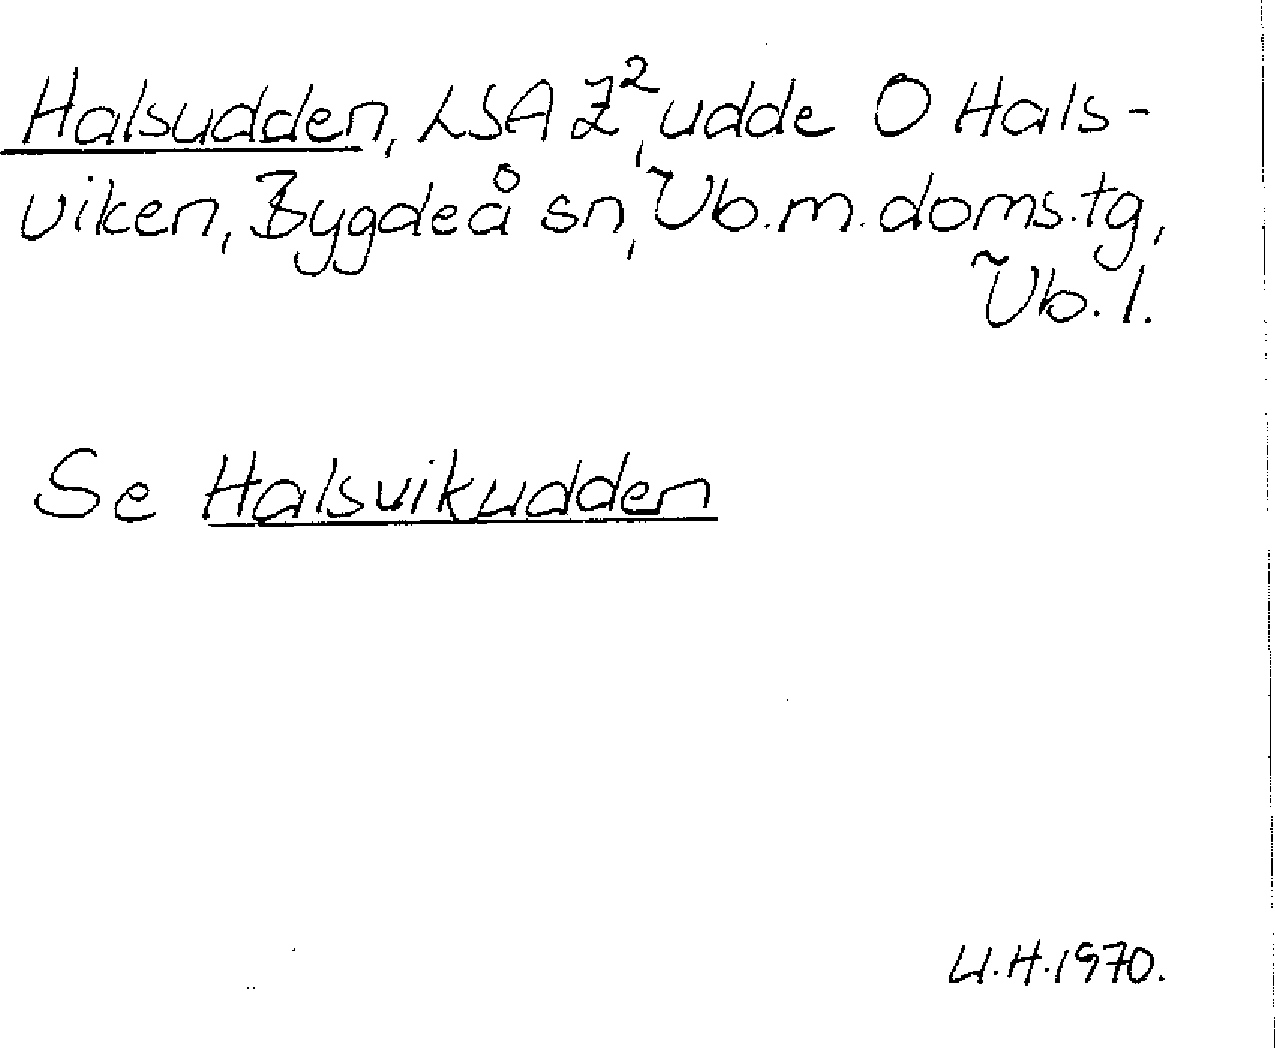 Halsudden, LSA Z², udde O Hals-
viken, Bygdeå sn, Vb.m. doms.tg,
Vb. l.
Se Halsvikudden
U.H. 1970.